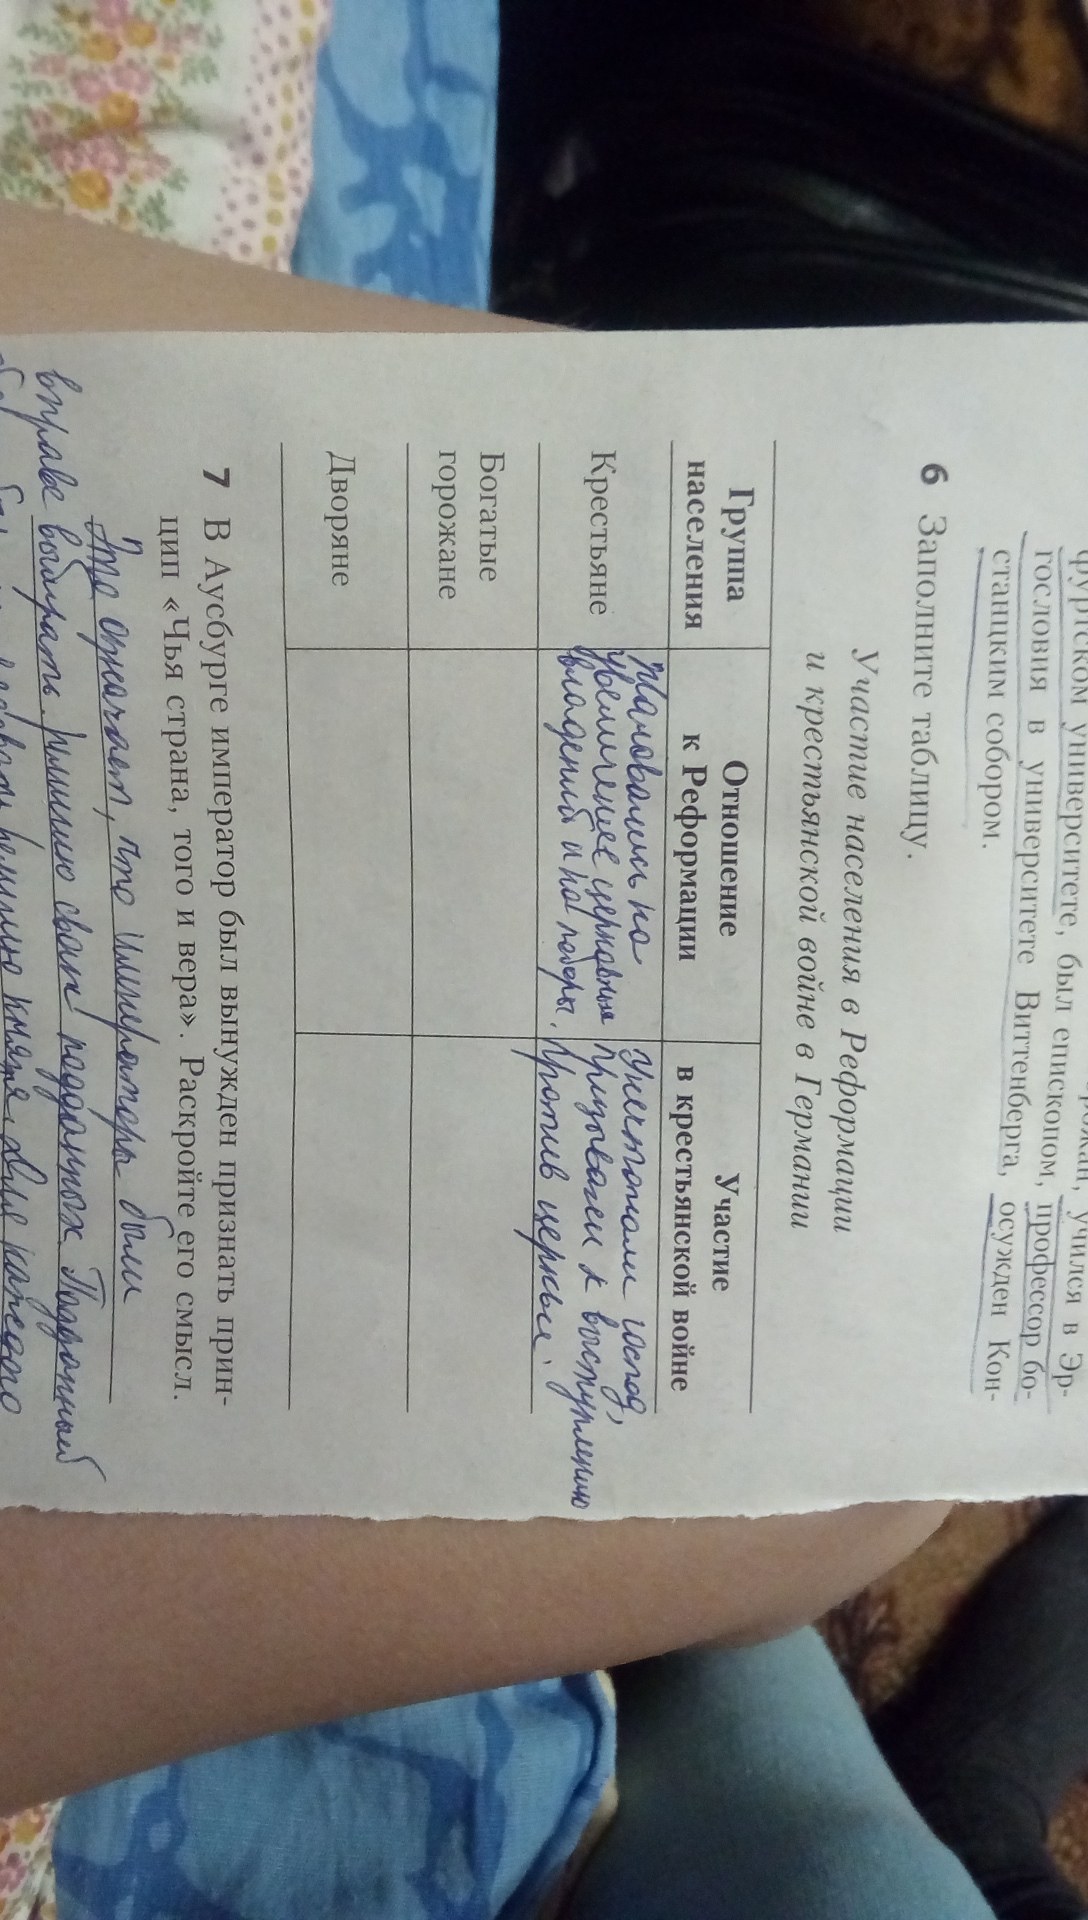 фуртском университете, был епископом, профессор бо-
гословия в университете Виттенберга, осужден Кон-
станцким собором.
6 Заполните таблицу.
Участие населения в Реформации
и крестьянской войне в Германии
Группа населения
Отношение к Реформации
Участие в крестьянской войне
Крестьяне
на
увеличение церковных
владений и на поборы.
Уничтожали господ,
призывали к выступлению
против церкви.
Богатые горожане
Дворяне
7 В Аусбурге император был вынужден признать прин-
цип «Чья страна, того и вера». Раскройте его смысл.
Это означает, что императоры были
вправе выбирать религию своих подданных. Подданный